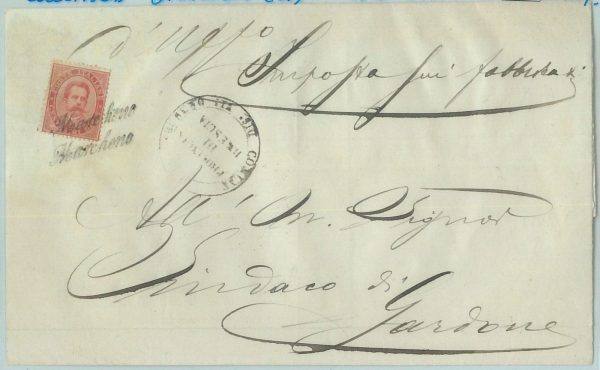 d'Uffo
Imposta sui fabbricati
Marcheno
Marcheno
PROVINCIA
DI
BRESCIA
All' On. Signor
Sindaco di
Gardone